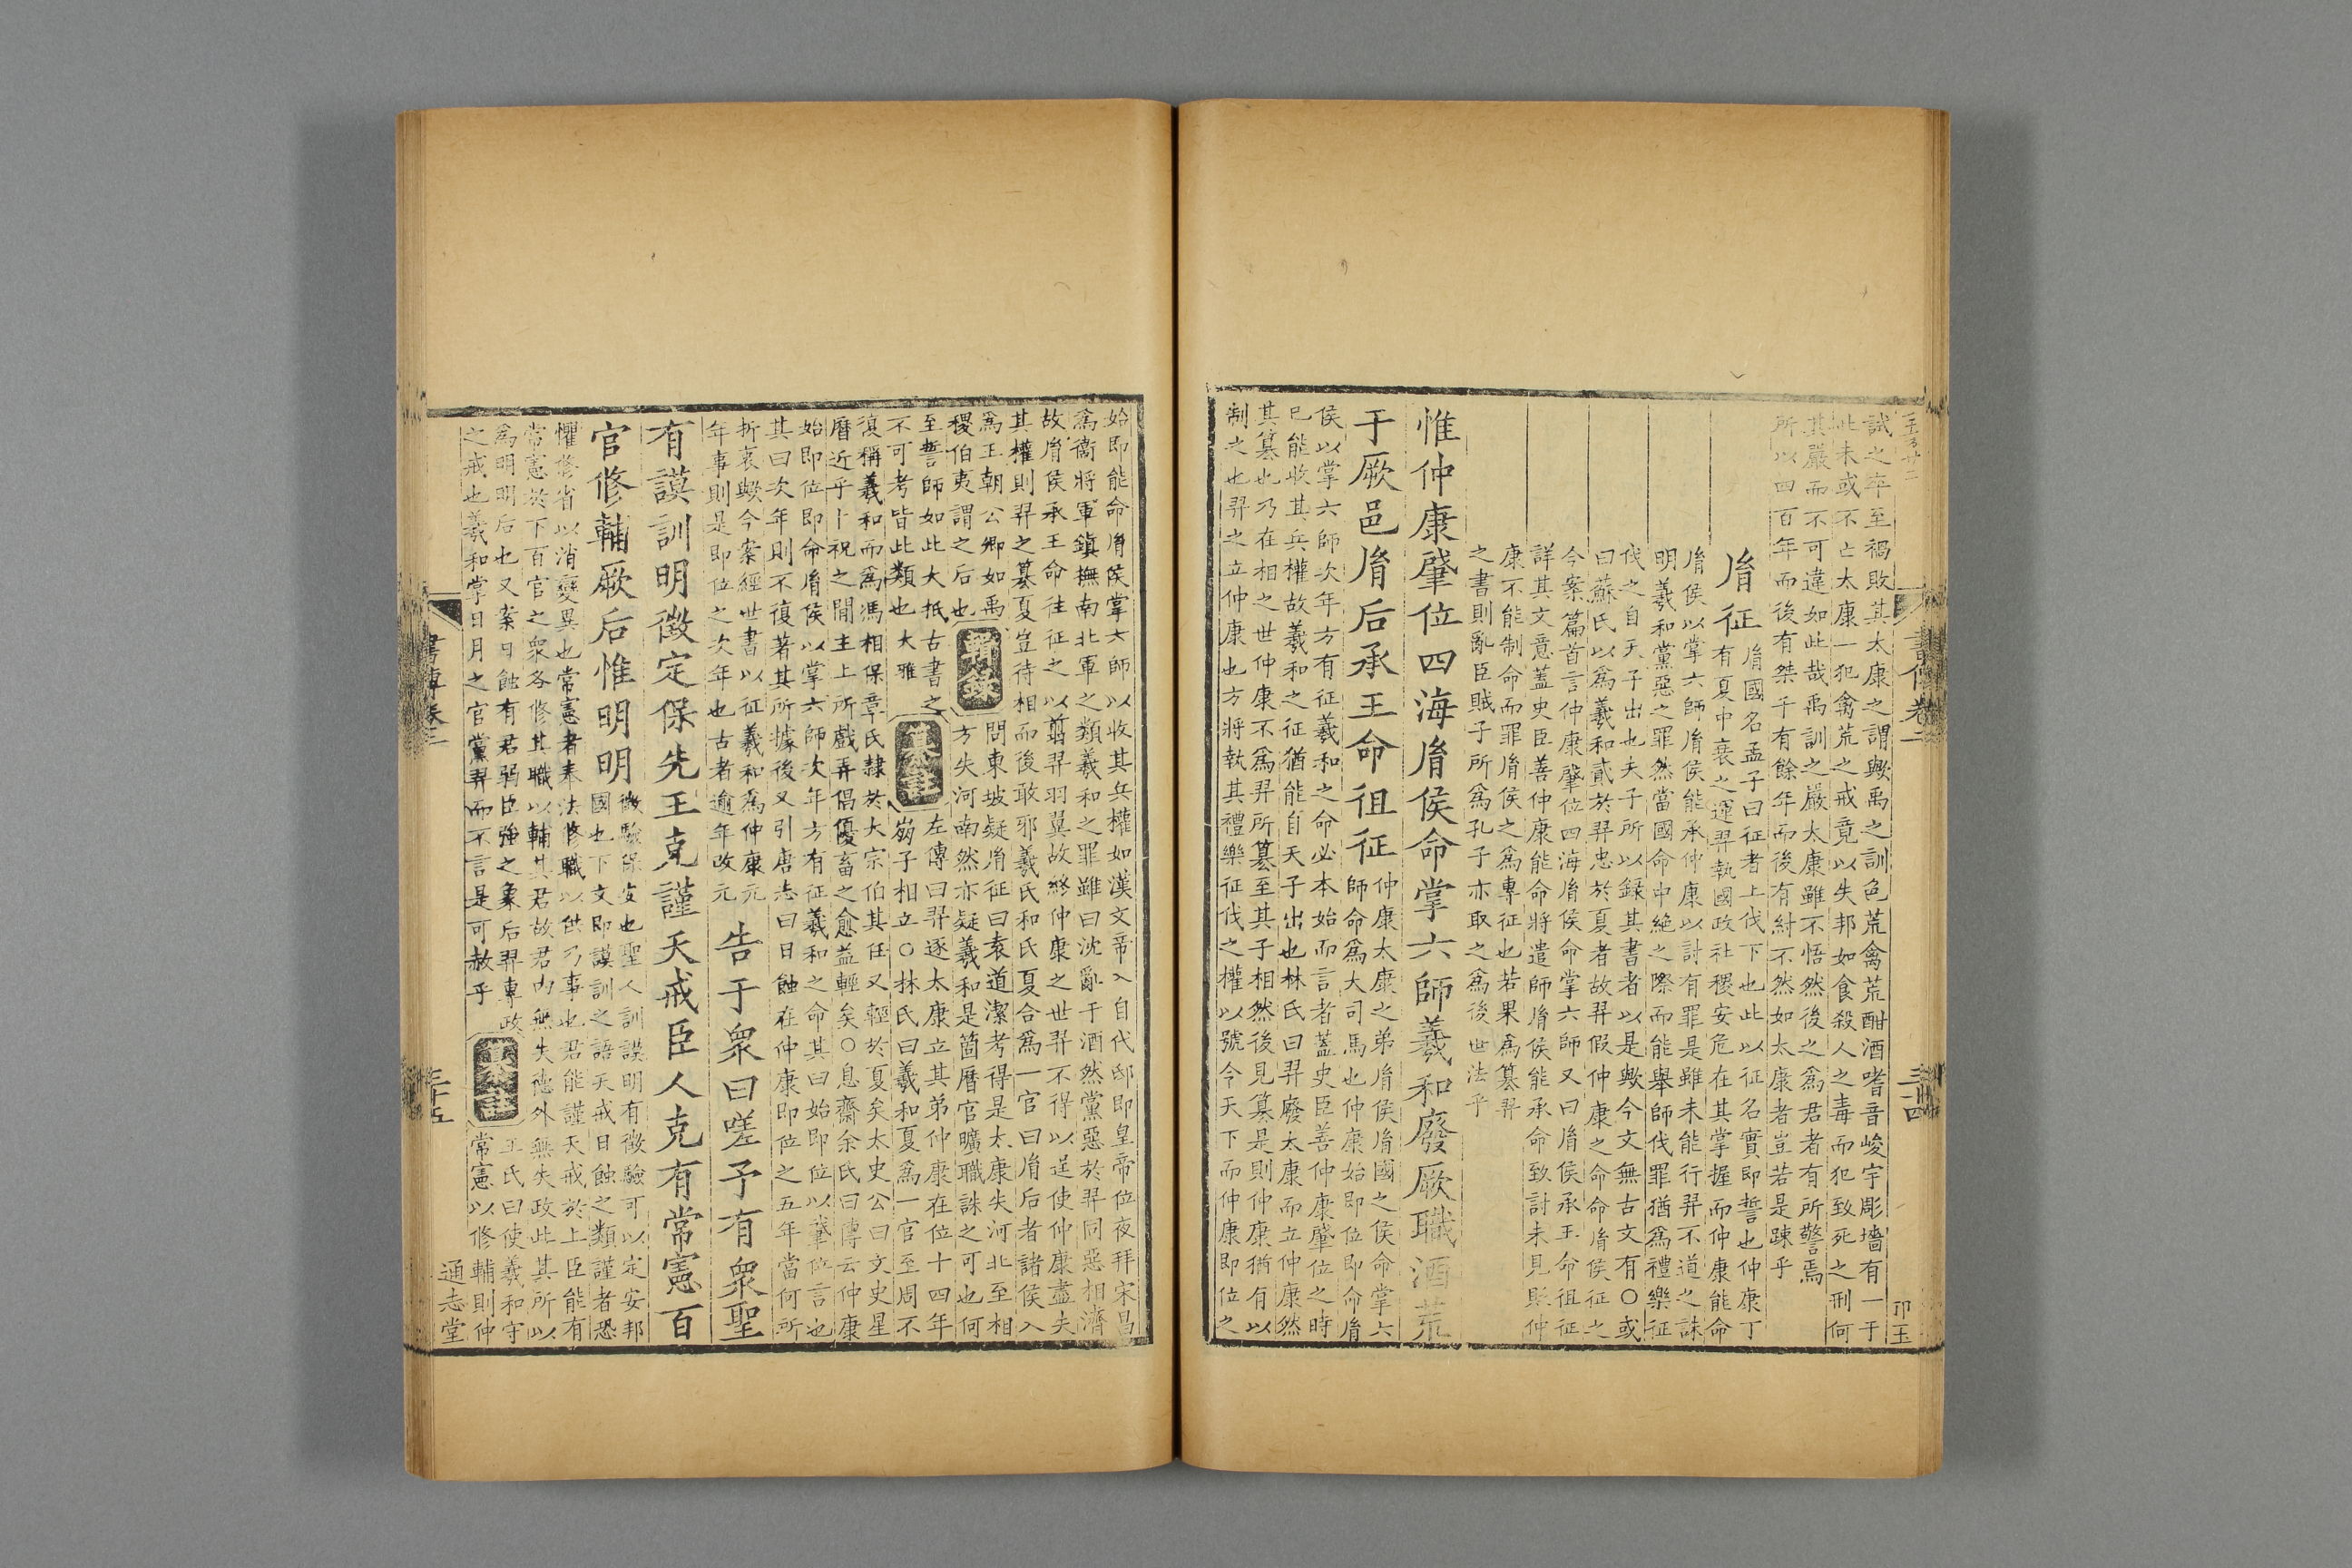 誡之卒至禍敗其太康之謂歟禹之訓色荒禽荒酣酒嗜音峻宇彫墻有一于
此未或不亡太康一犯禽荒之戒竟以失邦如食殺人之毒而犯致死之刑何
其嚴而不可違如此哉禹訓之嚴太康雖不悟然後之爲君者有所警焉
所以四百年而後有桀千有餘年而後有紂不然如太康者豈若是踈乎
胤征
胤國名孟子曰征者上伐下也此以征名實即誓也仲康丁
有夏中衰之運羿執國政社稷安危在其掌握而仲康能命
胤侯以掌六師胤侯能承仲康以討有罪是雖未能行羿不道之誅
明羲和黨惡之罪然當國命中絶之際而能舉師伐罪猶爲禮樂征
伐之自天子出也夫子所以録其書者以是歟今文無古文有○或
曰蘇氏以爲羲和貳於羿忠於夏者故羿假仲康之命命胤侯征之
今案篇首言仲康肇位四海胤侯命掌六師又曰胤侯承王命徂征
詳其文意蓋史臣善仲康能命將遣師胤侯能承命致討未見貶仲
康不能制命而罪胤侯之爲專征也若果爲簒羿
之書則亂臣賊子所爲孔子亦取之爲後世法乎
惟仲康肇位四海胤侯命掌六師羲和廢厥職酒荒
于厥邑胤后承王命徂征
仲康太康之弟胤侯胤國之侯命掌六
師命爲大司馬也仲康始即位即命胤
侯以掌六師次年方有征羲和之命必本始而言者蓋史臣善仲康肇位之時
已能收其兵權故羲和之征猶能自天子出也林氏曰羿廢太康而立仲康然
其簒也乃在相之世仲康不爲羿所簒至其子相然後見簒是則仲康猶有以
制之也羿之立仲康也方將執其禮樂征伐之權以號令天下而仲康即位之
書傳卷二
三十四
始即能命胤侯掌六師以收其兵權如漢文帝入自代邸即皇帝位夜拜宋昌
爲衞將軍鎭撫南北軍之類羲和之罪雖曰沈亂于酒然黨惡於羿同惡相濟
故胤侯承王命往征之以翦羿羽翼故終仲康之世羿不得以逞使仲康盡失
其權則羿之簒夏豈待相而後敢邪羲氏和氏夏合爲一官曰胤后者諸侯入
爲王朝公卿如禹
稷伯夷謂之后也
輯錄
問東坡疑胤征曰袁道潔考得是太康失河北至相
方失河南然亦疑羲和是箇曆官曠職誅之可也何
至誓師如此大抵古書之
不可考皆此類也 大雅
纂註
左傳曰羿逐太康立其弟仲康在位十四年
崩子相立○林氏曰羲和夏爲一官至周不
復稱羲和而爲馮相保章氏隷於大宗伯其任又輕於夏矣太史公曰文史星
曆近乎卜祝之間主上所戲弄倡優畜之愈益輕矣○息齋余氏曰傳云仲康
始即位即命胤侯以掌六師次年方有征羲和之命其曰始即位以肇位言也
其曰次年則不復著其所據後又引唐志曰日蝕在仲康即位之五年當何所
折衷歟今案經世書以征羲和爲仲康元
年事則是即位之次年也古者逾年改元
告于衆曰嗟予有衆聖
有謨訓明徵定保先王克謹天戒臣人克有常憲百
官修輔厥后惟明明
徵驗保安也聖人訓謨明有徵驗可以定安邦
國也下文即謨訓之語天戒日蝕之類謹者恐
懼修省以消變異也常憲者奉法修職以供乃事也君能謹天戒於上臣能有
常憲於下百官之衆各修其職以輔其君故君内無失德外無失政此其所以
爲明明后也又案日蝕有君弱臣強之象后羿專政
之戒也羲和掌日月之官黨羿而不言是可赦乎
纂註
王氏曰使羲和守
常憲以修輔則仲
書傳卷二
三十五
通志堂